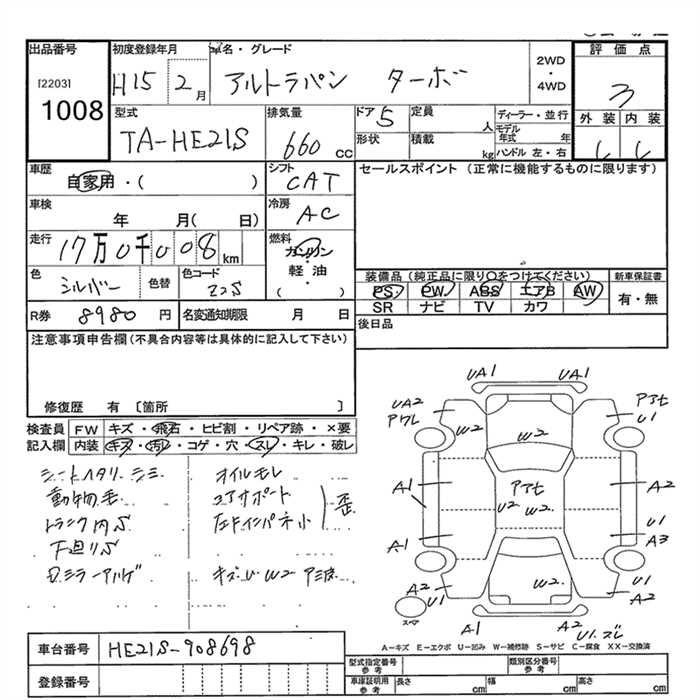 出品番号 初度登録年月 車名・グレード 2WD・4WD 評価点
[2203] 1008 H15 2月 アルトラパン ターボ 3
型式 TA-HE21S 排気量 660cc ドア 5 定員 人 ディーラー・並行 外装 内装
形状 積載 kg モデル年式 年 ハンドル 左・右
車歴 自家用・( ) シフト CAT セールスポイント (正常に機能するものに限ります)
車検 年 月( 日) 冷房 AC
走行 17万0千008km 燃料 ガソリン・軽油・( )
色 シルバー 色替 色コード Z2S 装備品 (純正品に限り○をつけてください) 新車保証書
PS PW ABS エアB AW 有・無
SR ナビ TV カワ
R券 8980円 名変通知期限 月 日 後日品
注意事項申告欄 (不具合内容等は具体的に記入して下さい)
修復歴 有 〔箇所 〕
検査員記入欄 FW キズ・飛石・ヒビ割・リペア跡・×要
内装 キズ・汚レ・コゲ・穴・スレ・キレ・破レ
シートヘタリ シミ オイルモレ
動物毛 コアサポート
トランク内S 左ドインパネ小 歪
下廻りS
D.ミラーアルゲ キズ U W2 アミ波
UA1
UA2 アワレ W2 W2 アアセ U1
A1 アアセ A2
U2 W2
A1 U1 A3
A2 U1 W2 U1 A2
スペア A1 A2 U1.ズレ
A－キズ E－エクボ U－凹み W－補修跡 S－サビ C－腐食 XX－交換済
車台番号 HE21S-908698
登録番号
型式指定番号 参考 類別区分番号 参考
車庫証明用 参考 長さ cm 幅 cm 高さ cm